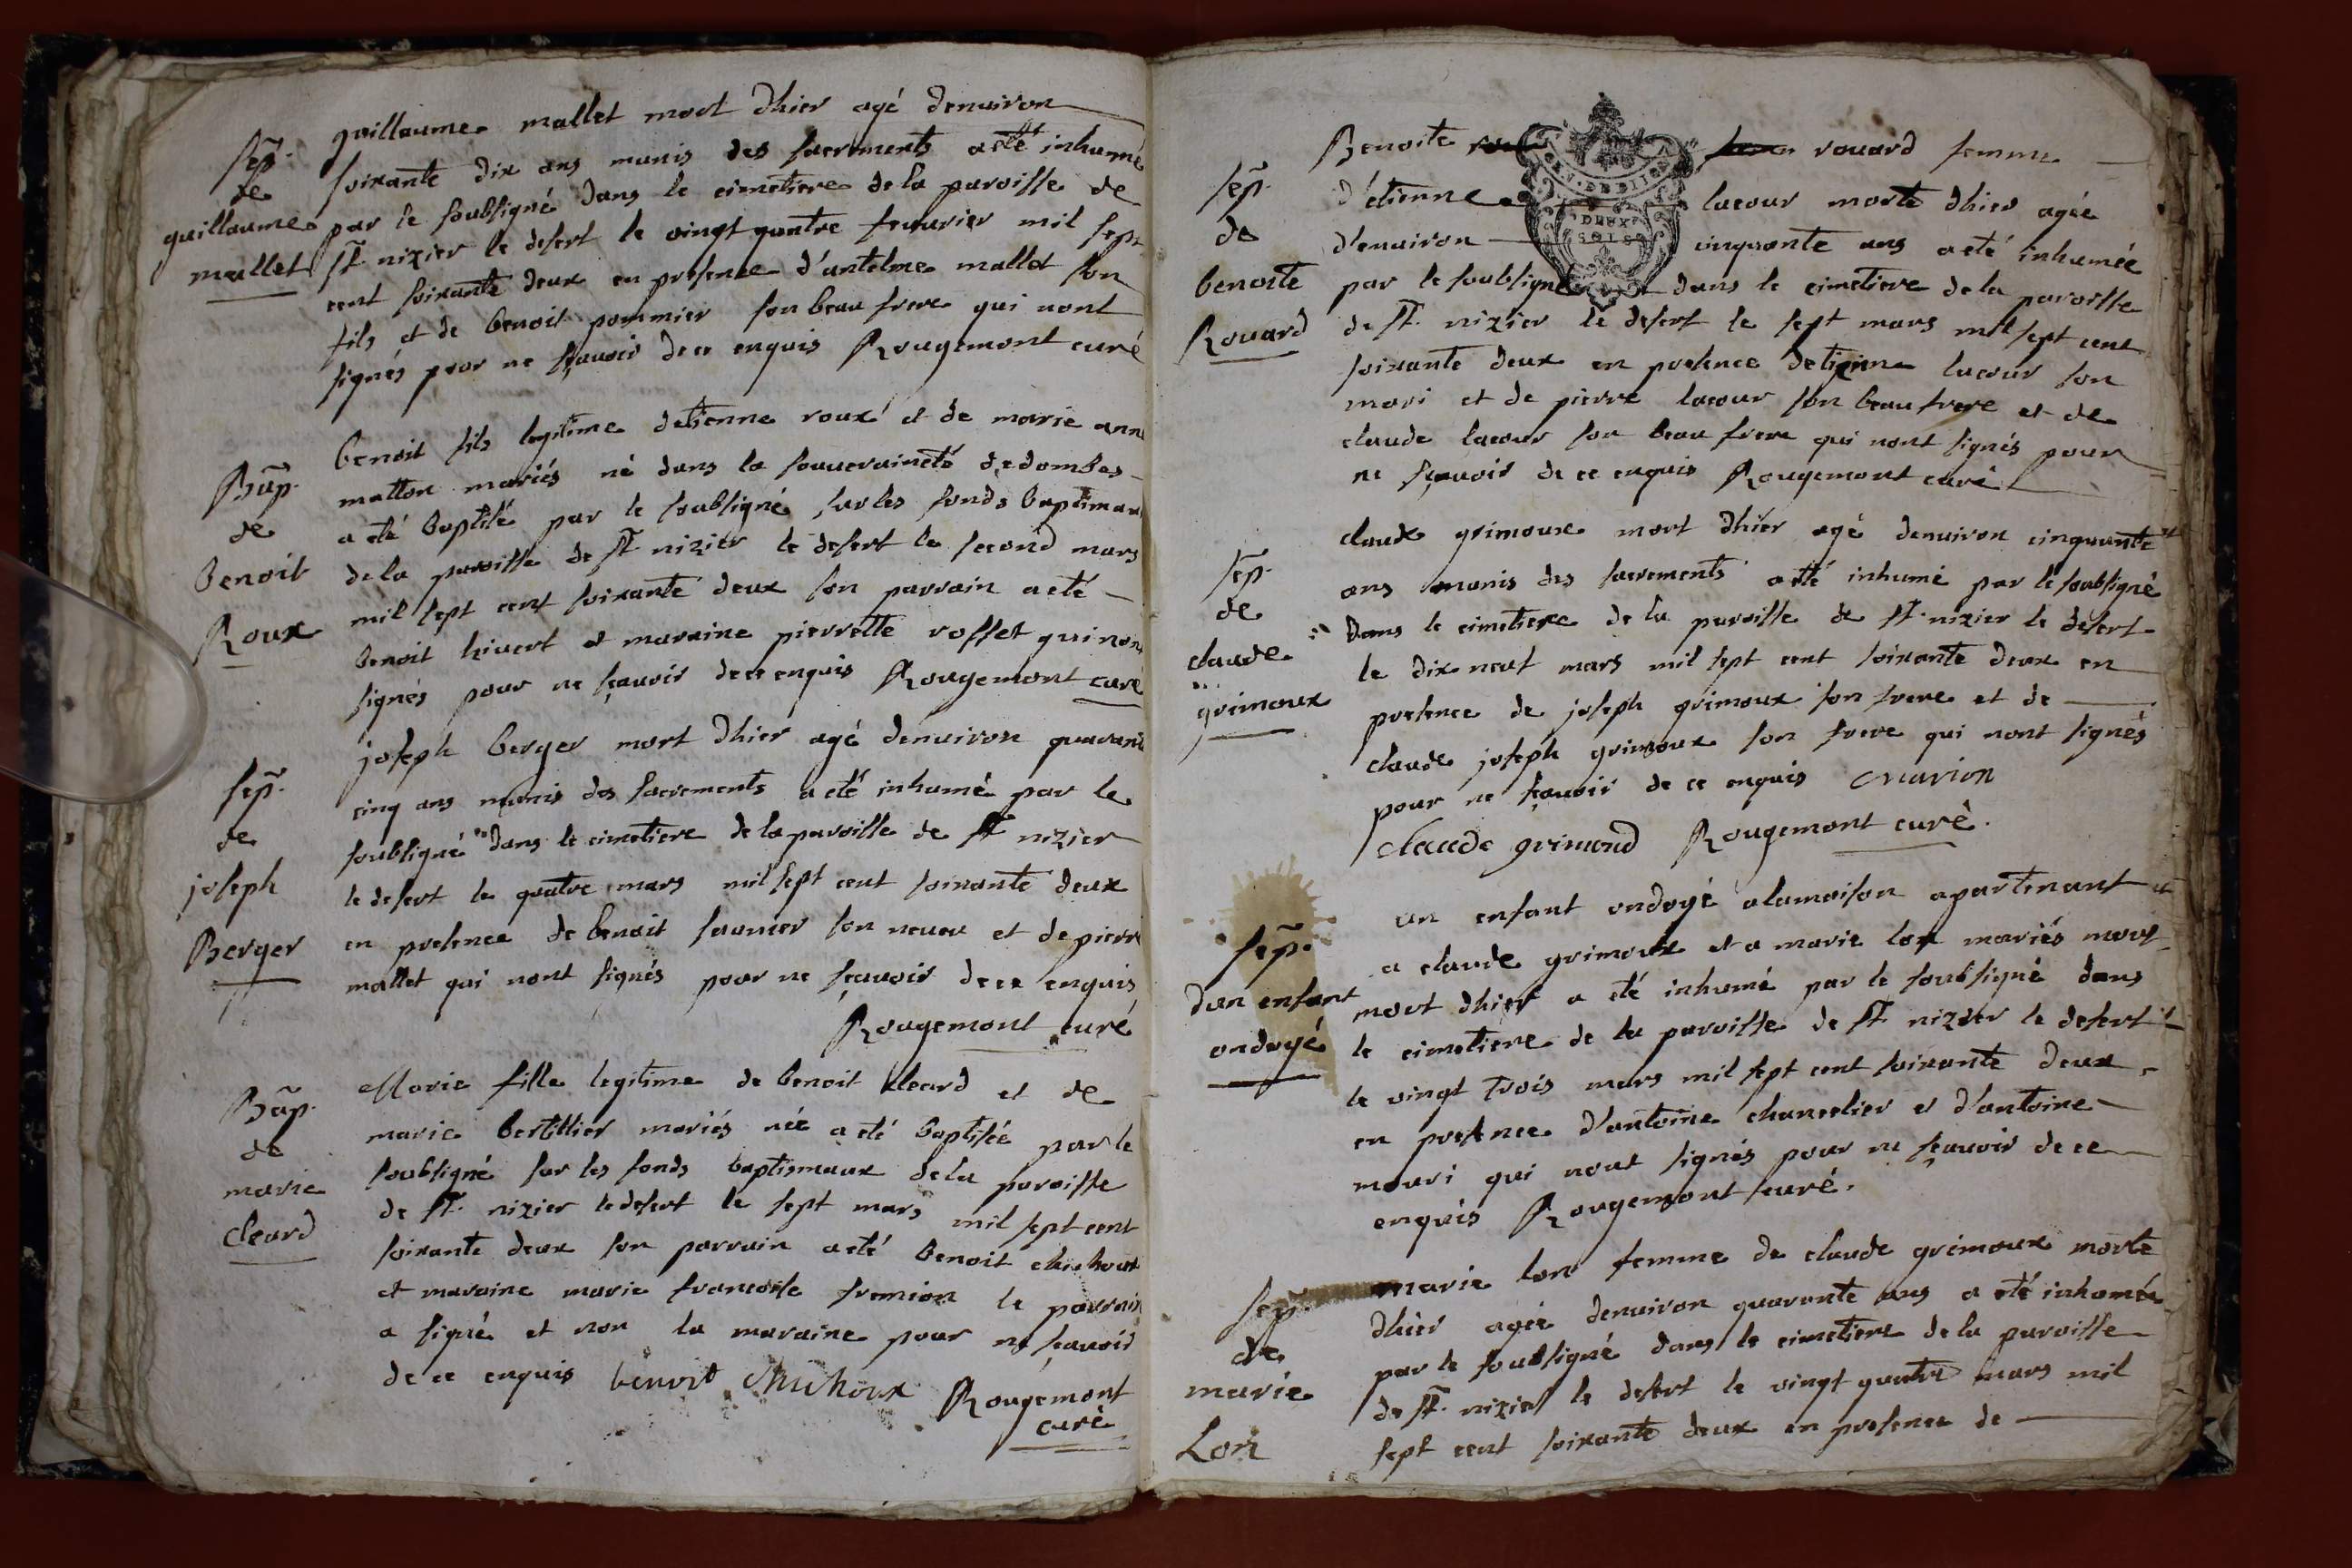 guillaume mallet mort dhier agé denuiron
sep. soixante dix ans munis des sacrements a eté inhumé
de par le soubsigné dans le cimetiere de la paroisse de
guillaume st. nizier le desert le vingt quatre feuurier mil sept
mallet cent soixante deux en presence d'antelme mallet son
fils et de benoit pommier son beau frere qui nont
signés pour ne sçauoir de ce enquis Rougemont curé
benoit fils legitime detienne roux et de marie anne
Bap. matton mariés né dans la souueraineté de dombes
de a eté baptisé par le soubsigné sur les fonds baptimau
benoit de la paroisse de st nizier le desert le second mars
Roux mil sept cent soixante deux son parrain a eté
benoit hiuert et maraine pierrette rosset qui non
signés pour ne sçauoir de ce enquis Rougemont curé
joseph berger mort dhier agé denuiron quarante
sep. cinq ans munis des sacrements a eté inhumé par le
de soubsigné dans le cimetiere de la paroisse de st nizier
joseph le desert le quatre mars mil sept cent soixante deux
Berger en presence de benoit saunier son neueu et de pierre
mallet qui nont signés pour ne sçauoir de ce enquis
Rougemont curé
Marie fille legitime de benoit cleard et de
Bap. marie bertillier mariés née a eté baptisée par le
de soubsigné sur les fonds baptismaux de la paroisse
marie de st. nizier le desert le sept mars mil sept cent
cleard soixante deux son parrain a eté benoit chichoux
et maraine marie francoise fremion le parrain
a signé et non la maraine pour ne sçauoir
de ce enquis benoit chichoux Rougemont
curé
Benoite rouard femme
sep. d'etienne lacour morte dhier agée
de d'enuiron cinquante ans a eté inhumée
benoite par le soubsigné dans le cimetiere de la paroisse
Rouard de st. nizier le desert le sept mars mil sept cent
DEUX SOLS
soixante deux en presence detienne lacour son
mari et de pierre lacour son beau frere et de
claude lacour son beau frere qui nont signés pour
ne sçauoir de ce enquis Rougemont curé
claude grimoux mort dhier agé denuiron cinquante
sep. ans munis des sacrements a eté inhumé par le soubsigné
de dans le cimetiere de la paroisse de st. nizier le desert
claude le dix neuf mars mil sept cent soixante deux en
grimoux presence de joseph grimoux son frere et de
claude joseph grimoux son frere qui nont signés
pour ne sçauoir de ce enquis Marion
claude grimond Rougemont curé.
un enfant ondoyé a la maison apartenant
sep. a claude grimoux et a marie lon mariés mort
dun enfant mort dhier a eté inhumé par le soubsigné dans
ondoyé le cimetiere de la paroisse de st. nizier le desert
le vingt trois mars mil sept cent soixante deux
en presence d'antoine chancelier et d'antoine
mouri qui nont signés pour ne sçauoir de ce
enquis Rougemont curé.
marie lon femme de claude grimoux morte
sep. dhier agée denuiron quarante ans a eté inhumée
de par le soubsigné dans le cimetiere de la paroisse
marie de st. nizier le desert le vingt quatre mars mil
Lon sept cent soixante deux en presence de